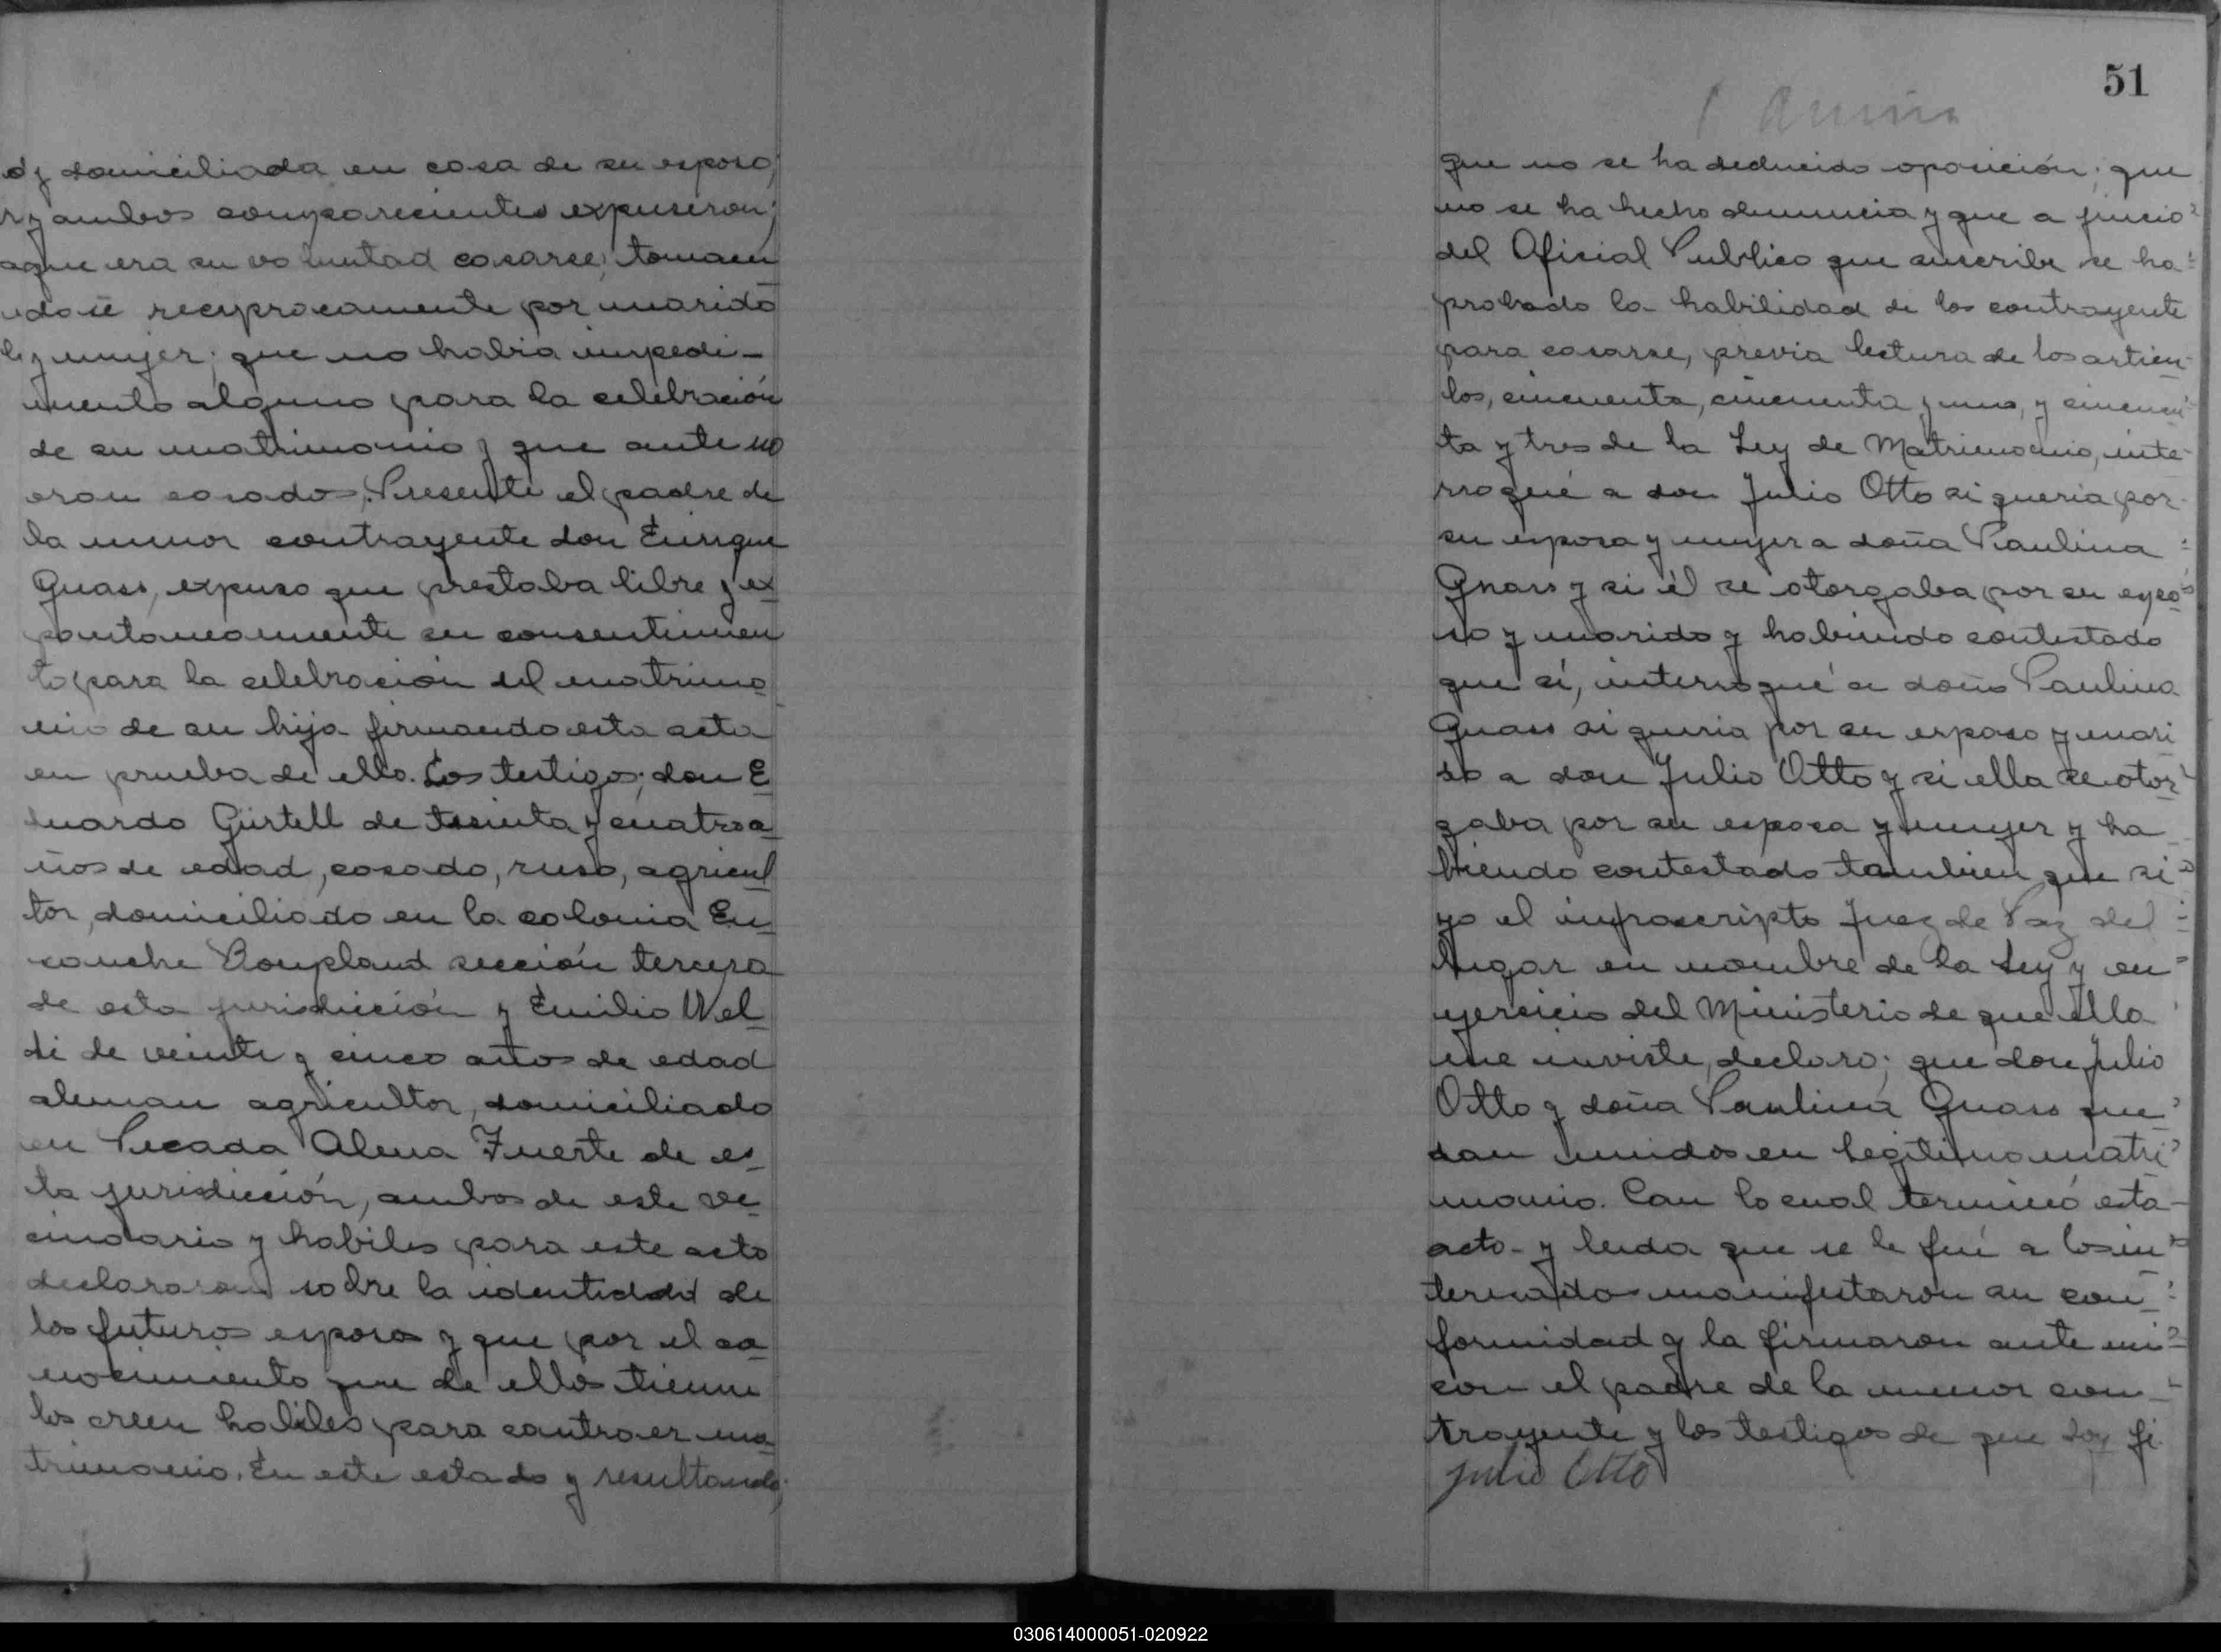 domiciliada en casa de su esposo,
y ambos comparecientes expusieron;
que era su voluntad casarse, toman
dose recyprocamente por marido
y mujer; que no habia impedi-
mento alguno para la celebración
de su matrimonio y que ante no
eran casados. Presente el padre de
la menor contrayente don Enrique
Quass, expuso que prestaba libre y es
pontaneamente su consentimien
to para la celebracion del matrimo
nio de su hija firmando esta acta
en prueba de ello. Los testigos; don E
duardo Gürtell de treinta y cuatro a
ños de edad, casado, ruso, agricul
tor, domiciliado en la colonia En
sanche Bonpland sección tercera
de esta jurisdicción y Emilio Wel
di de veinte y cinco años de edad
aleman agricultor, domiciliado
en Picada Alena Fuerte de es
ta jurisdicción, ambos de este ve
cindario y habiles para este acto
declararon sobre la identidad de
los futuros esposos y que por el co
nocimiento que de ellos tienen
los creen habiles para contraer ma
trimonio. En este estado y resultando;
51
que no se ha deducido oposición; que
no se ha hecho denuncia y que a juicio
del Oficial Publico que suscribe se ha
probado la habilidad de los contrayente
para casarse, previa lectura de los articu-
los, cincuenta, cincuenta y uno, y cincuen-
ta y tres de la Ley de Matrimonio, inte-
rrogué a don Julio Otto si queria por
su esposa y mujer a doña Paulina
Quass y si él se otorgaba por su espo
so y marido y habiendo contestado
que sí, interrogué a doña Paulina
Quass si queria por su esposo y mari
do a don Julio Otto y si ella se otor
gaba por su esposa y mujer y ha
biendo contestado tambien que si
yo el infrascripto Juez de Paz del
lugar en nombre de la Ley y en
ejercicio del Ministerio de que ella
me inviste, declaro; que don Julio
Otto y doña Paulina Quass que
dan unidos en legitimo matri
monio. Con lo cual terminó esta
acto- y leida que se le fué a los in
teresados manifestaron su con
formidad y la firmaron ante mi
con el padre de la menor con
trayente y los testigos de que doy fé.
Julio Otto
030614000051-020922